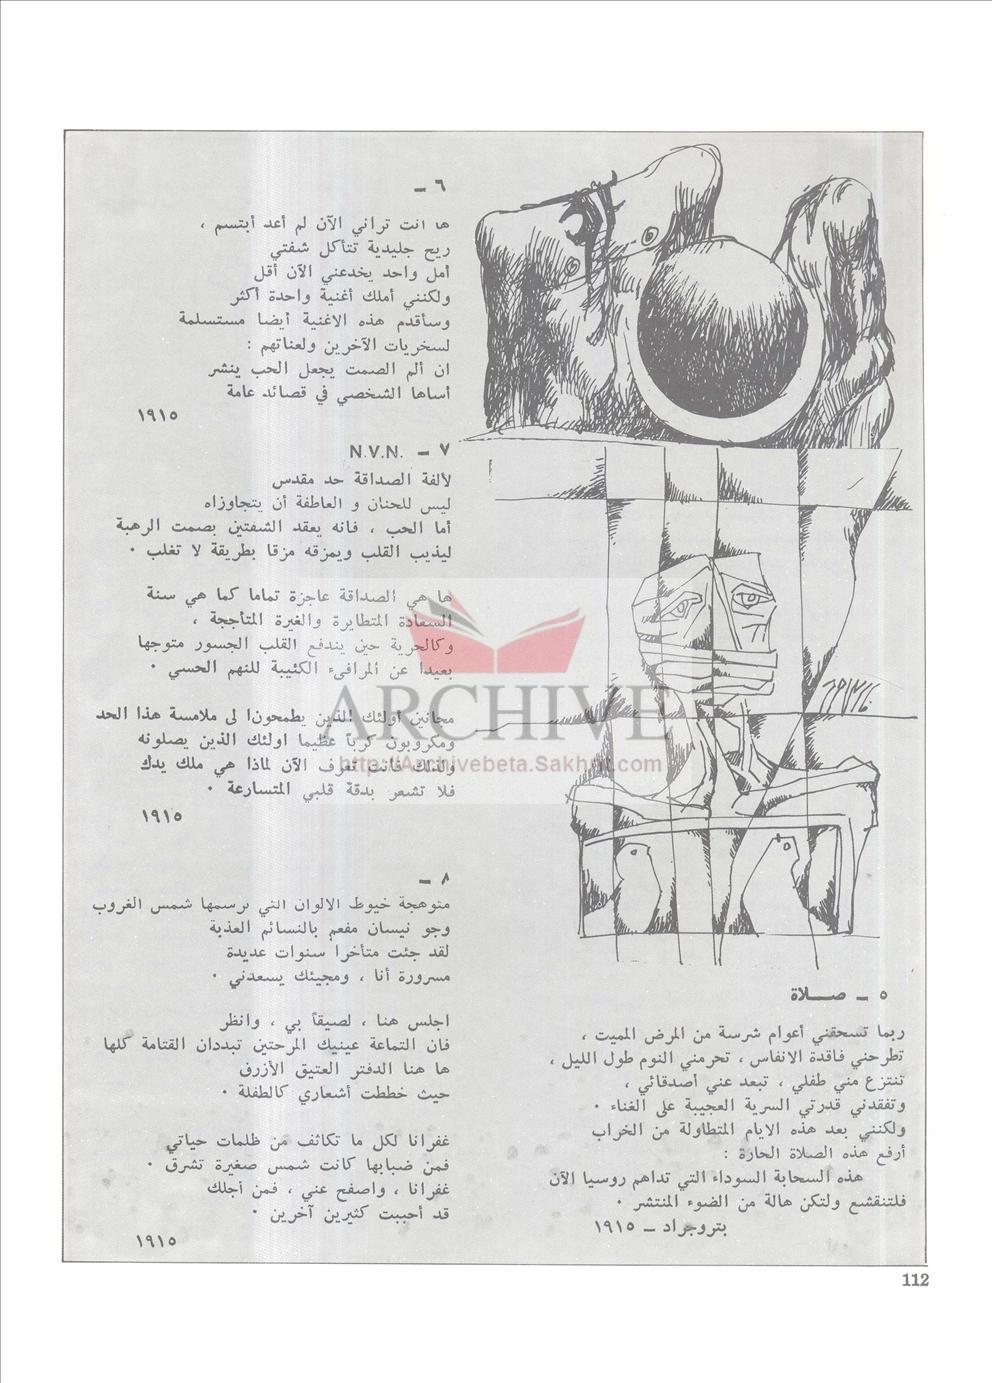 ٥ ــ صـــلاة
ربما تسحقني أعوام شرسة من المرض المميت ،
تطرحني فاقدة الانفاس ، تحرمني النوم طول الليل ،
تنتزع مني طفلي ، تبعد عني أصدقائي ،
وتفقدني قدرتي السرية العجيبة على الغناء ·
ولكنني بعد هذه الايام المتطاولة من الخراب
أرفع هذه الصلاة الحارة :
هذه السحابة السوداء التي تداهم روسيا الآن
فلتنقشع ولتكن هالة من الضوء المنتشر ·
بتروجراد ــ ١٩١٥
٦ ــ
ها انت تراني الآن لم أعد أبتسم ،
ريح جليدية تتأكل شفتي
أمل واحد يخدعني الآن أقل
ولكنني أملك أغنية واحدة أكثر
وسأقدم هذه الاغنية أيضا مستسلمة
لسخريات الآخرين ولعناتهم :
ان ألم الصمت يجعل الحب ينشر
أساها الشخصي في قصائد عامة
١٩١٥
٧ ــ N.V.N.
لألفة الصداقة حد مقدس
ليس للحنان و العاطفة أن يتجاوزاه
أما الحب ، فانه يعقد الشفتين بصمت الرهبة
ليذيب القلب ويمزقه مزقا بطريقة لا تغلب ·
ها هي الصداقة عاجزة تماما كما هي سنة
السعادة المتطايرة والغيرة المتأججة ،
وكالحرية حين يندفع القلب الجسور متوجها
بعيدا عن المرافىء الكئيبة للنهم الحسي ·
مجانين اولئك الذين يطمحون الى ملامسة هذا الحد
ومكروبون كرباً عظيما اولئك الذين يصلونه
ولذلك فانت تعرف الآن لماذا هي ملك يدك
فلا تشعر بدقة قلبي المتسارعة ·
١٩١٥
٨ ــ
متوهجة خيوط الالوان التي ترسمها شمس الغروب
وجو نيسان مفعم بالنسائم العذبة
لقد جئت متأخرا سنوات عديدة
مسرورة أنا ، ومجيئك يسعدني ·
اجلس هنا ، لصيقاً بي ، وانظر
فان التماعة عينيك المرحتين تبددان القتامة كلها
ها هنا الدفتر العتيق الأزرق
حيث خططت أشعاري كالطفلة ·
غفرانا لكل ما تكاثف من ظلمات حياتي
فمن ضبابها كانت شمس صغيرة تشرق ·
غفرانا ، واصفح عني ، فمن أجلك
قد أحببت كثيرين آخرين ·
١٩١٥
ARCHIVE
http://Archivebeta.Sakhrit.com
112